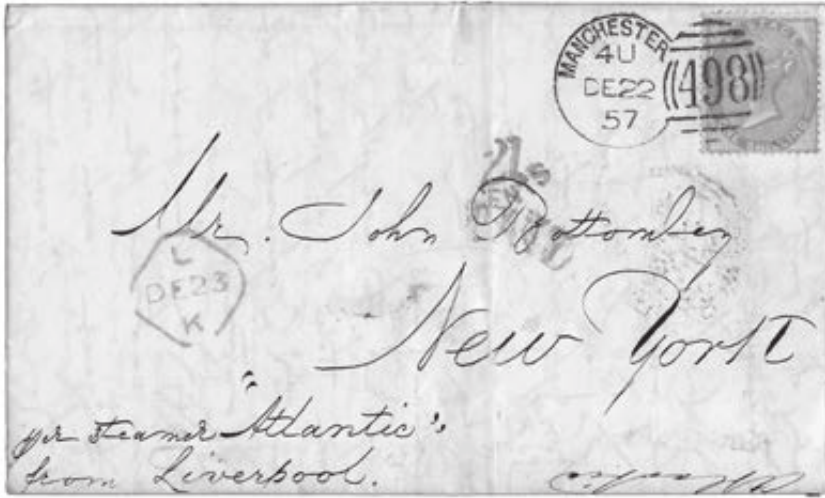 MANCHESTER
4U
DE22
57
498
Mr. John Bottomley
L
DE23
K
New York
per steamer "Atlantic"
from Liverpool.